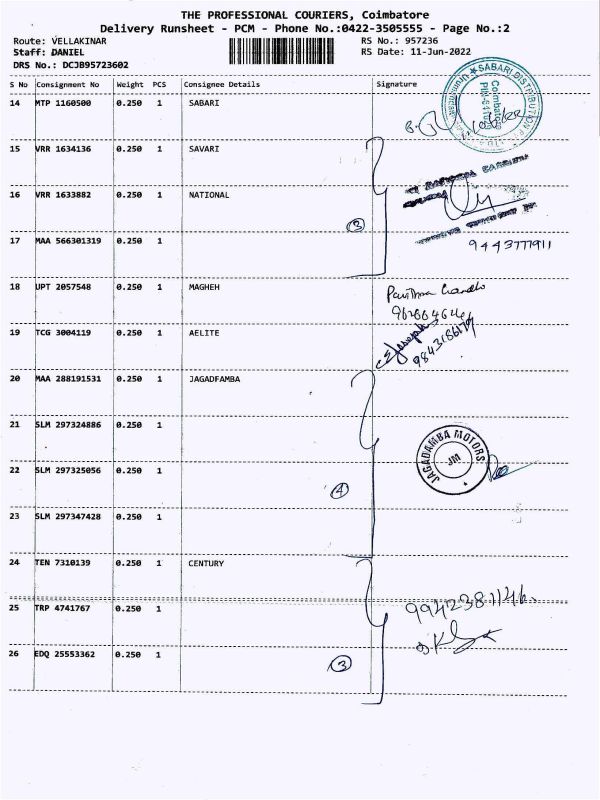 THE PROFESSIONAL COURIERS, Coimbatore
Delivery Runsheet - PCM - Phone No.:0422-3505555 - Page No.:2
Route: VELLAKINAR
RS No.: 957236
Staff: DANIEL
RS Date: 11-Jun-2022
DRS No.: DCJB95723602
S No Consignment No Weight PCS Consignee Details Signature
14 MTP 1160500 0.250 1 SABARI
SABARI DISTRIBUTION
Coimbatore
15 VRR 1634136 0.250 1 SAVARI
16 VRR 1633882 0.250 1 NATIONAL
3
17 MAA 566301319 0.250 1
9443777911
18 UPT 2057548 0.250 1 MAGHEH
19 TCG 3004119 0.250 1 AELITE
20 MAA 288191531 0.250 1 JAGADFAMBA
21 SLM 297324886 0.250 1
JAGADAMBA MOTORS
JM
22 SLM 297325056 0.250 1
4
23 SLM 297347428 0.250 1
24 TEN 7310139 0.250 1 CENTURY
25 TRP 4741767 0.250 1
26 EDQ 25553362 0.250 1
3